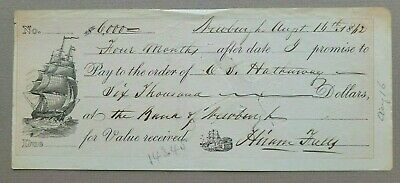 No. $6,000 Newburgh Augt 14th 1862
Four Months after date I promise to
Pay to the order of C. S. Hathaway
Six Thousand Dollars,
at the Bank of Newburgh
for Value received. Hiram Falls
Due